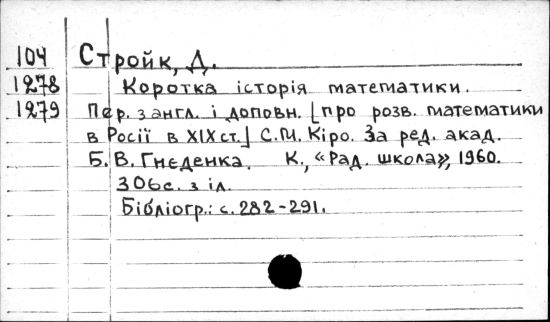 104 Стройк, Д.
1278 Коротка історія математики.
1279 Пер. з англ. і доповн. [про розв. математики
в Росії в XIX ст.] С.М. Кіро. За ред. акад.
Б.В. Гнєденка. К., «Рад. школа», 1960.
306с. з іл.
Бібліогр.: с. 282-291.